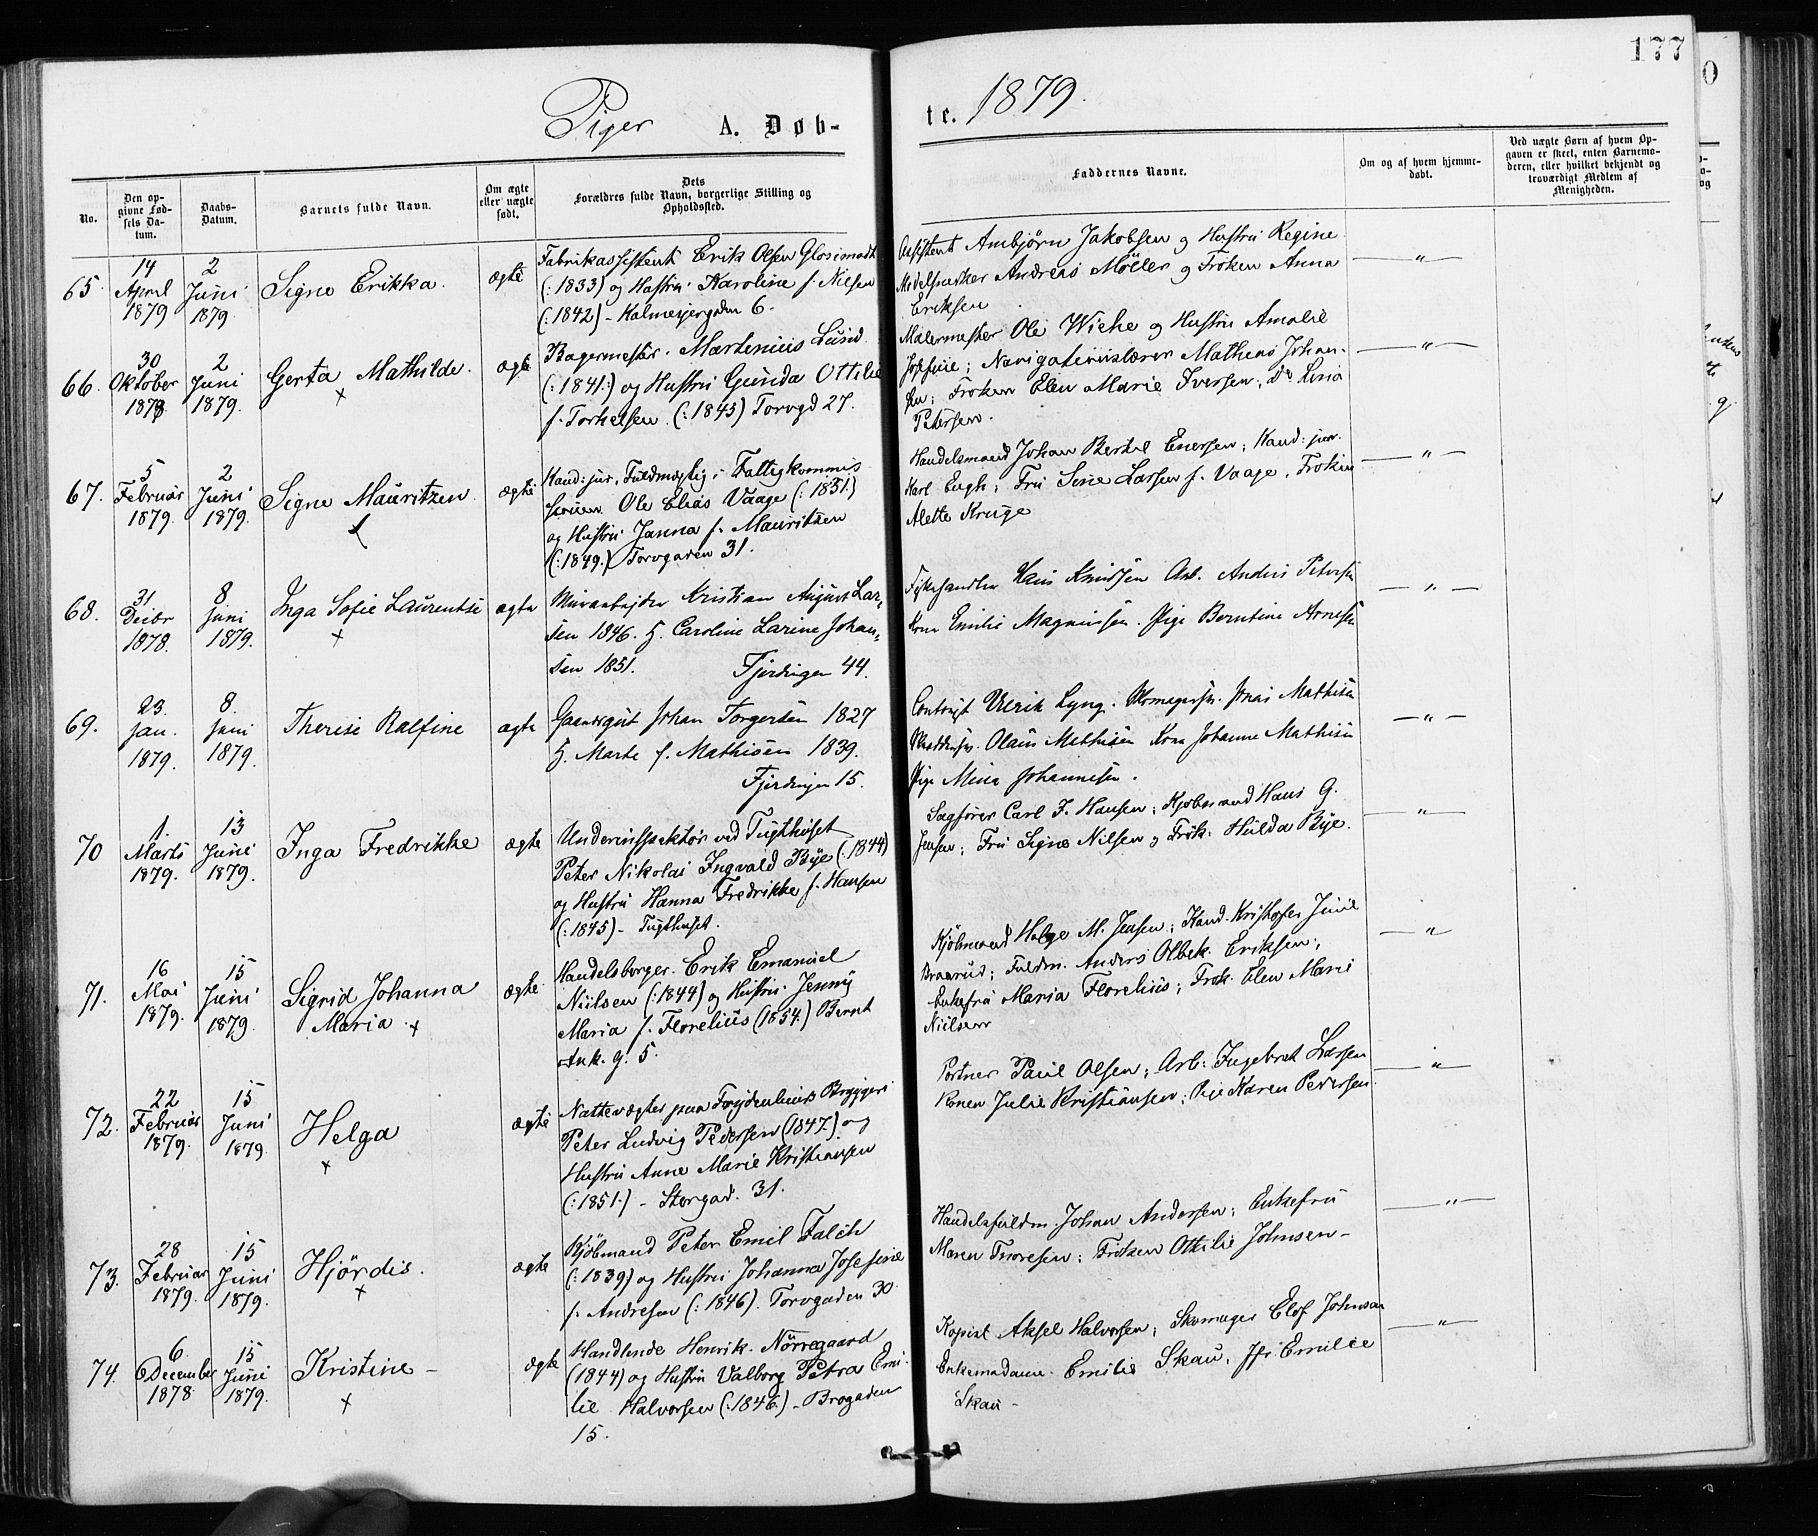 177
Piger A. Døb-
te. 1879.
No.
Den op-
givne Fød-
sels Da-
tum.
Daabs-
Datum.
Barnets fulde Navn.
Om ægte
eller uægte
født.
Dets
Forældres fulde Navn, borgerlige Stilling og
Opholdssted.
Faddernes Navne.
Om og af hvem hjemme-
døbt.
Ved uægte Børn af hvem Op-
gaven er skeet, enten Barnemo-
deren, eller hvilket bekjendt og
troværdigt Medlem af
Menigheden.
65.
14
April
1879
2
Juni
1879.
Signe Erikka.
ægte
Fabrikassistent Erik Olsen
(:1833) og Hustru Karoline f. Nilsen
(:1842) - 6.
Assistent Ambjørn Jakobsen og Hustru Regine
Modelsnedker Andreas Möller og Frøken Anna
Eriksen
— " —
66.
30
Oktober
1878.
2
Juni
1879.
Gerta Mathilde.
×
ægte
Bagermester Martenius Lund
(:1841:) og Hustru Gunda Ottilie
f. Torkelsen. (:1845) Torvgd 27.
Malermester Ole Wiche og Hustru Amalie
Josefine; Navigationslærer Matheus Johan-
sen; Frøken Elen Marie Iversen; Do Lina
Petersen.
— " —
67.
5
Februar
1879.
2
Juni
1879.
Signe Mauritzen.
ægte
Kand: jur, Fuldmægtig i Fattigkommis-
sionen Ole Elias Vaage (:1851.)
og Hustru Janna f. Mauritzen
(:1849.) Torvgaden 31.
Handelsmand Johan Bertel Enersen; Kand: jur.
Karl Engh; Fru Sine Larsen f. Vaage, Frøken
Alette Kruge
— " —
68.
31
Decbr
1878.
8
Juni
1879.
Inga Sofie Laurentse
×
ægte
Murarbejder Kristian August Lar-
sen 1846. H. Caroline Larine Johan-
sen 1851. Fjerdingen 44.
Fiskehandler Hans Knudsen Arb. Anders Petersen
Kone Emilie Magnussen. Pige Berntine Arnesen
— " —
69.
23.
Jan.
1879.
8.
Juni
1879.
Therese Ralfine
ægte
Gaardsgut Johan Torgersen 1827
H. Marte f. Mathisen 1839.
Fjerdingen 15.
Contorist Ulrik Lyng. Skomagersv. Jonas Mathisen
Skræddersv. Olaus Mathisen Kone Johanne Mathisen
Pige Mina Johannesen.
— " —
70
1.
Marts
1879.
13
Juni
1879.
Inga Fredrikke
ægte
Underinspektør ved Tugthuset
Peter Nikolai Ingvald Bye (:1844)
og Hustru Hanna Fredrikke f. Hansen
(:1845) - Tugthuset.
Sagfører Carl F. Hansen; Kjøbmand Hans G.
Jensen; Fru Signe Nilsen og Frøk: Hulda Bye.
— " —
71.
16
Mai
1879.
15
Juni
1879.
Sigrid Johanna
Maria. ×
ægte.
Handelsborger. Erik Emanuel
Nilsen (:1844) og Hustru Jenny
Maria f. Florelius (1854.) Bernt
Ank. g. 5.
Kjøbmand Helge M. Jensen; Kand. Kristofer Juul
Braarud; Fuldm. Anders Olbek. Eriksen;
Enkefru Maria Florelius; Frøk. Elen Marie
Nilsen
— " —
72.
22
Februar
1879.
15
Juni
1879.
Helga
×
ægte
Nattevægter paa Frydenlunds Bryggeri
Peter Ludvig Pedersen (1847.) og
Hustru Anne Marie Kristiansen
(:1851.) - Storgad. 31.
Portner Paul Olsen; Arb: Ingebret Larsen
Konen Julie Kristiansen; Pige Karen Pedersen.
— " —
73.
28
Februar
1879.
15
Juni
1879.
Hjördis.
×
ægte
Kjöbmand Peter Emil Falch
(:1839) og Hustru Johanna Josefine
f. Andresen (:1846). Torvgaden 30.
Handelsfuldm. Johan Andersen; Enkefru
Maren Thoresen; Frøken Ottilie Johnsen-
— " —
74.
6.
December
1878.
15
Juni
1879.
Kristine -
×
ægte
Handlende Henrik. Nörregaard
(1844) og Hustru Valborg Petra Emi-
lie Halvorsen (:1846.) - Brogaden
15.
Kopist Aksel Halvorsen; Skomager Elof Johnsen
Enkemadame. Emilie Skau, Jfr: Emilie
Skau -
— " —